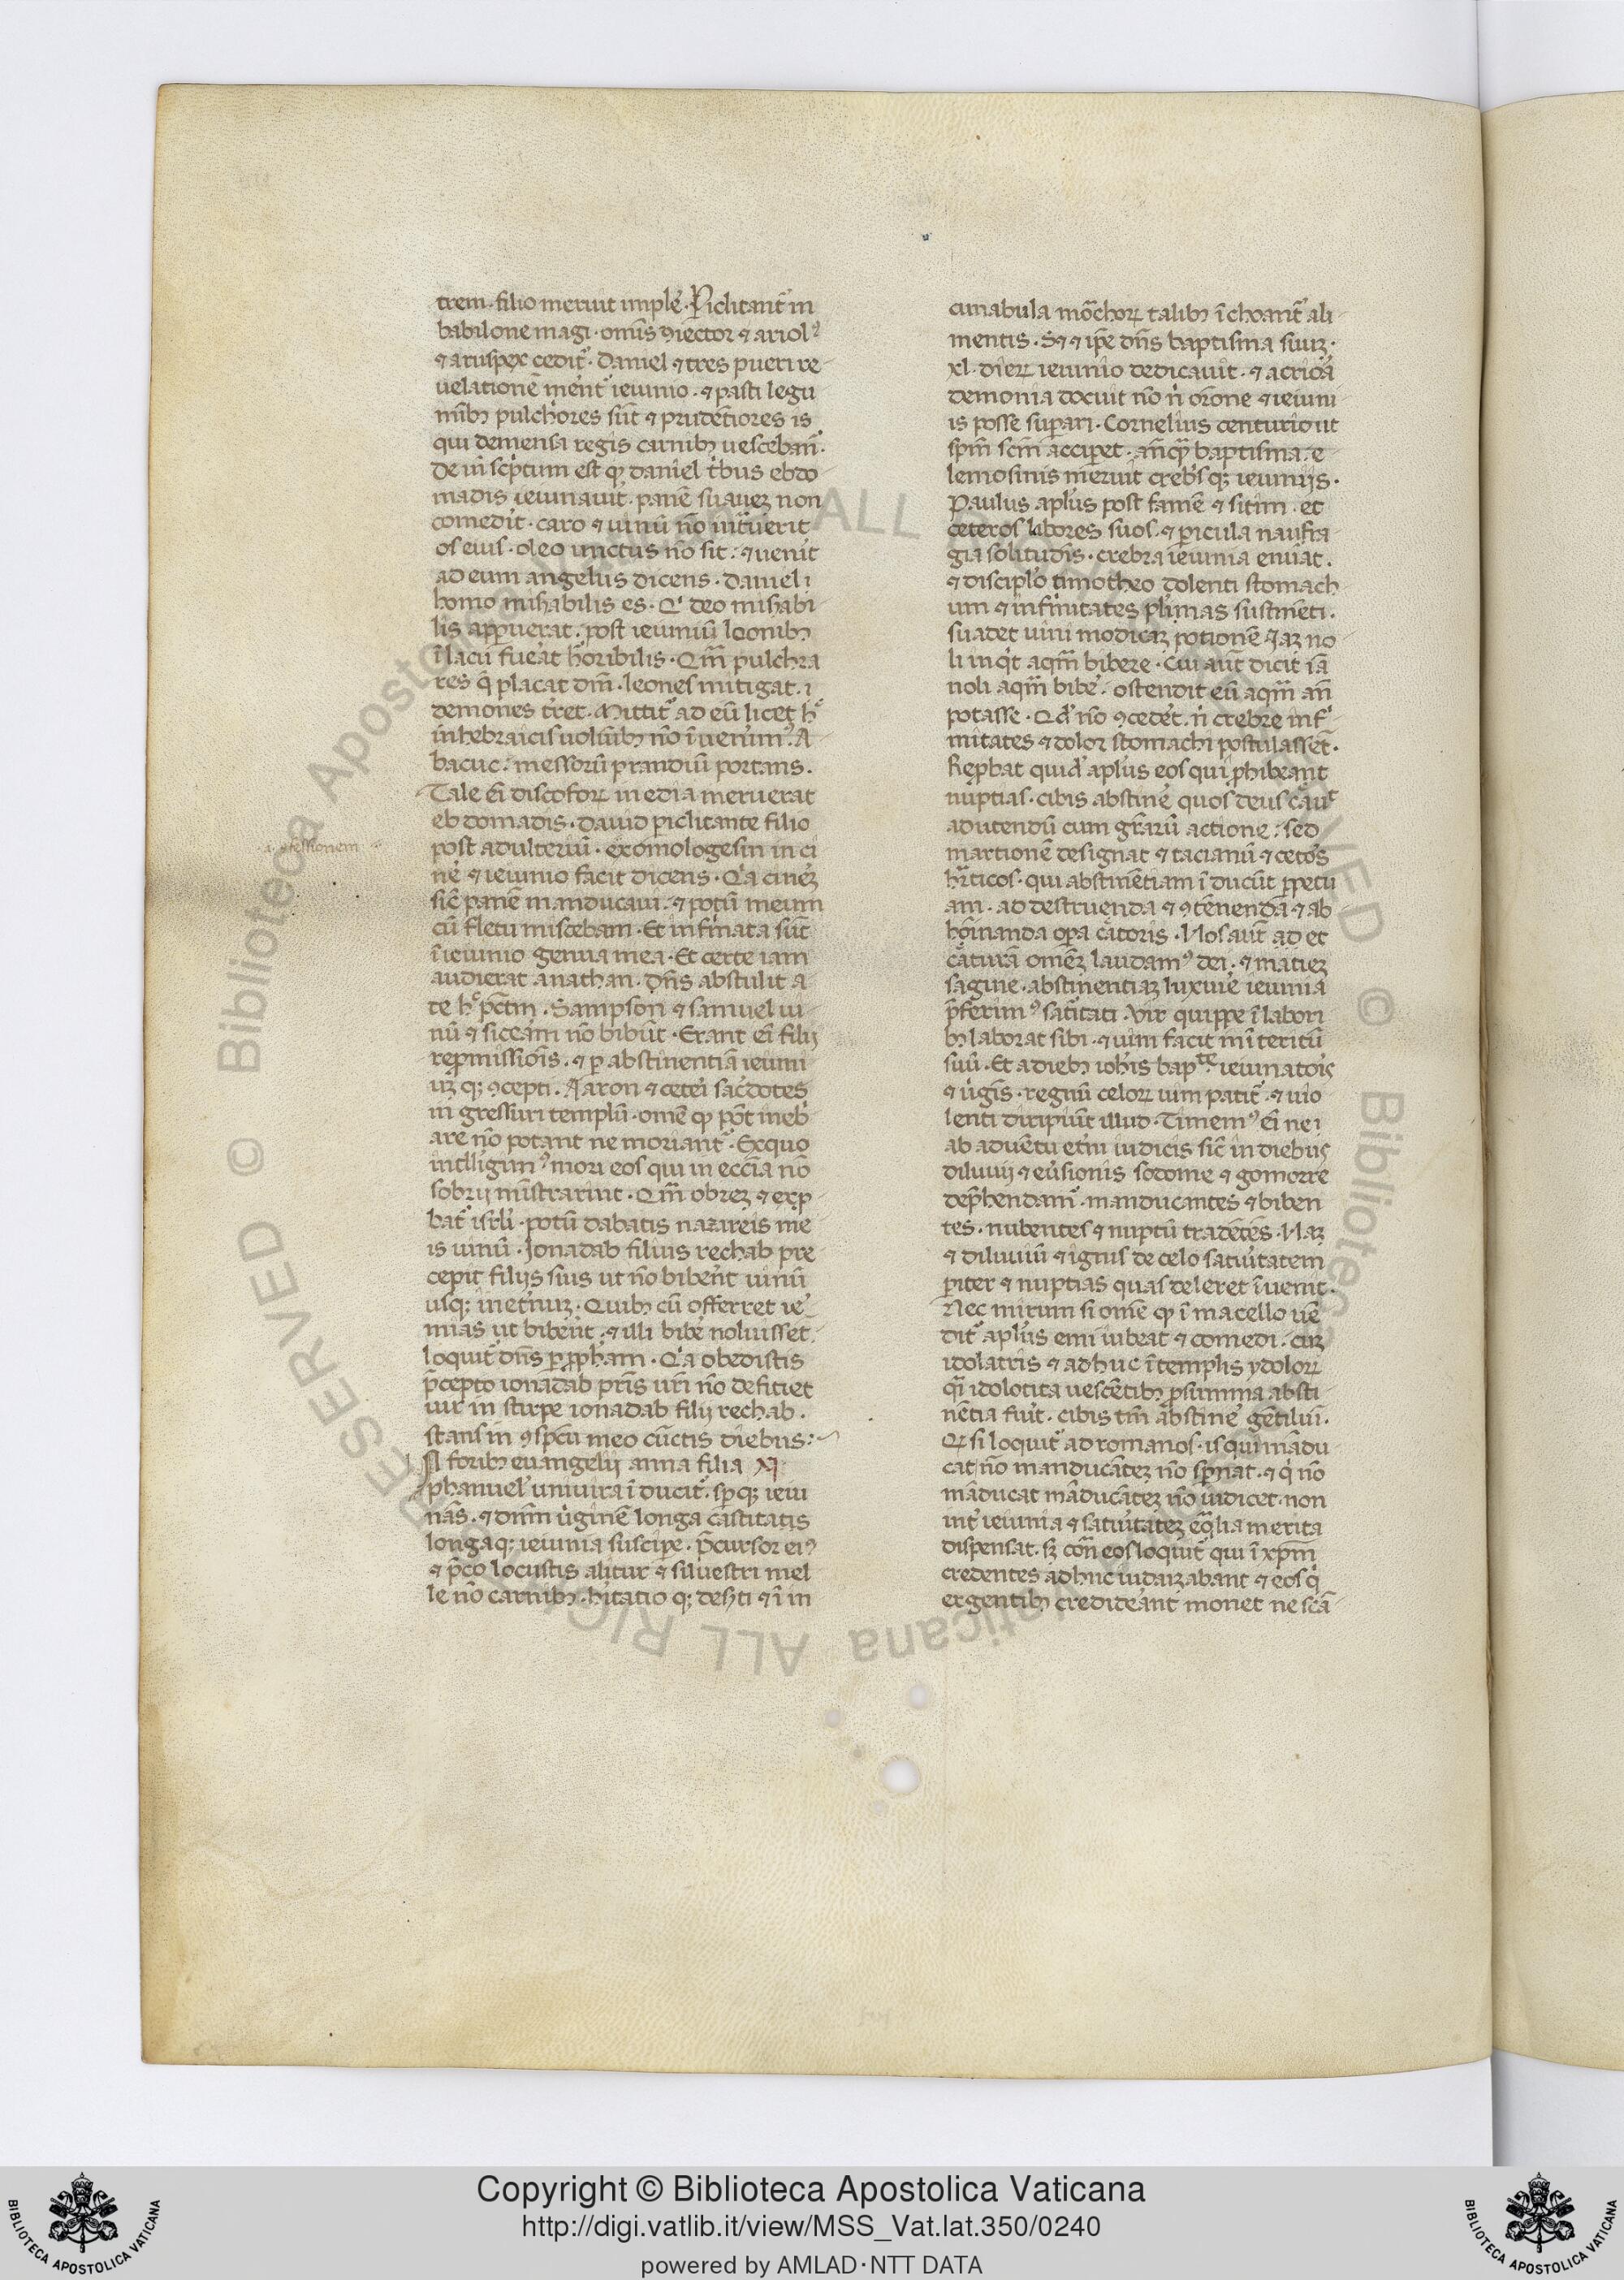 trem · filio meruit imple᷑ · Piclitant᷑ in
babilone magi · om̅is ꝯiector ⁊ ariolꝰ
⁊ aruspex cedit᷑ · daniel ⁊ tres pueri re
uelationē ment᷑ ieiunio · ⁊ pasti legu
mībꝫ pulchͥores sūt ⁊ prudētiores is
qui demensa regis carnibꝫ uescebant᷑ ·
de in sc̣ptum est qꝫ daniel tͥbus ebdo
madis ieiunauit · panē suauez non
comedit · caro ⁊ uinū nō intͣuerit
os eius · oleo unctus nō sit : ⁊ uenit
ad eum angelus dicens · daniel i
homo mis̓abilis es · Qͥ deo mis̓abi
lis apparuerat · post ieiuniū leonibꝫ
ī lacu fuerat horͥibilis · Qm̄ pulchra
res q̄ placat dm̄ · leones mitigat · i
demones tr̓ret · Mittit᷑ ad eū licet hͦ
in hebraicis uoluībꝫ nō īuenim᷑ · A
bacuc : messorū prandiū portans ·
Tale eī discoforꝝ in edia meruerat
eb domadis · dauid piclitante filio
post adulteriū · exomologesin in ci
ne᷑ ⁊ ieiunio facit dicens · Qͥa cinēz
sic̄ panē manducaui · ⁊ potū meum
cū fletu miscebam · Et infirmata sūt
ī ieiunio genua mea · Et certe iam
audierat anathan · dn̄s abstulit a
te hͦ pc̄tm · Sampson ⁊ samuel ui
nū ⁊ siceam nō bibūt · Erant eī filij
repͬmissiois̄ · ⁊ ꝑ abstinentiā ieiuni
uꝫ qꝫ ꝯcepti · Aaron ⁊ cetei̓ sac̓dotes
in gressuri templū · omē qꝫ pōt inebͥ
are nō potant ne moriant᷑ · Exquo
intelligimꝰ mori eos qui in ecc̄ia nō
sobrij mīstrarint · Qm̄ obrez ⁊ exp̱
bat᷑ isrl᷑ · potū dabatis nazireis me
is uinū · Ionadab filius rechab pre
cepit filijs suis ut nō bibe̓nt uinū
usqꝫ inetn̓uꝫ · Quibꝫ cū offerret ie᷑
mias ut bibe̓nt · ⁊ illi bibe᷑ noluisset ·
loquit᷑ dn̄s ꝑ ꝓpham · Qͥa obedistis
p̄cepto ionadab pr̄is ur̄i nō deficiet
uir in stirpe ionadab filij rechab ·
stans in ꝯsp̄cu meo cūctis diebus :
A foribꝫ euangelij anna filia
phanuel᷑ uniuira īducit᷑ · sp̱ qꝫ ieiu
nās · ⁊ dn̄m uͥginē longa castitatis
longaqꝫ ieiunia suscipe · p̄cursor eiꝰ
⁊ p̄co locustis alitur ⁊ siluestri mel
le nō carnibꝫ · hͥtatio qꝫ des̓ti ⁊ ī in
a ꝯfessionem
cunabula mōchorꝝ talibꝫ īchoant᷑ ali
mentis · Sꝫ ⁊ ip̄e dn̄s baptisma suuꝫ ·
xl · dierꝝ ieiunio dedicauit · ⁊ acrioͣ
demonia docuit nō ni oͬone ⁊ ieiuni
is posse supari · Cornelius centurio ut
spm̄ scm̄ accipet · an̄qͣ baptisma · e
lemosinis meruit crebͥsqꝫ ieiunijs ·
Paulus apl᷑us post famē ⁊ sitim · et
ceteros labores suos · ⁊ picula naufra
gia solitudis̄ · crebra ieiunia eniat᷑ ·
⁊ discipl᷑o timotheo dolenti stomach
um ⁊ infirmitates pl᷑imas sustinēti ·
suadet uini modicaꝫ potionē Iaꝫ no
li inqͥt aqͣm bibere · Cui aūt dicit iā
noli aqͣm bibe᷑ · ostendit eū aqͣm an̄
potasse · Qd᷑ nō ꝯcede̓t · ni crebre infͥ
mitates ⁊ dolor stomachi postulasset᷑ ·
Rep̱bat quid᷑ apl᷑us eos qui p̱hibeant
nuptias · cibis abstine᷑ quos deus c̓auͭ
ad utendū cum gr̄arū actione : sed
martionē designat ⁊ tacianū ⁊ cetos̓
hr̄ticos · qui abstinētiam īducūt ꝑpetu
am · ad destruenda ⁊ ꝯtēnenda ⁊ ab
hōīnanda opa c̓atoris · Nos aūt ad et
c̓aturā omēz laudamꝰ dei · ⁊ matiez
sagine · abstinentiaꝫ luxurie ieiunia
p̄ferimꝰ satͥitati · Vir quippe ī labori
bꝫ laborat sibi · ⁊ uim facit inīteritū
suū · Et adiebꝫ ioh̄is bapᵗᵉ ieiunatoͬis
⁊ uͥgis̄ · regnū celorꝝ uim patit᷑ · ⁊ uio
lenti diripiūt illud · Timemꝰ eī ne i
ab aduētu etn̓i iudicis sic̄ in diebus
diluuij ⁊ eus̓ionis sodome ⁊ gomorre
dep̄hendam᷑ · manducantes ⁊ biben
tes · nubentes ⁊ nuptū tradētes · Naꝫ
⁊ diluuiū ⁊ ignis de celo satuͬitatem
pͣiter ⁊ nuptias quas deleret īuenit ·
Nec mirum si omē qꝫ ī macello uē
dit᷑ apl᷑us emi iubeat ⁊ comedi · cuꝫ
idolatris ⁊ adhuc ī templis ydolorꝝ
qͣi idolotita uescētibꝫ p̱ summa absti
nētia fuit᷑ · cibis tm̄ abstine᷑ gētiliuī ·
Qꝫ si loquit᷑ ad romanos · is qui mādu
cat nō manducātez nō spn̓at · ⁊ qͥ nō
māducat māducātez nō iudicet · non
int᷑ ieiunia ⁊ satuͬitatez eqͣlia merita
dispensat · sꝫ con̄ eos loquit᷑ qui ī xpm̄
credentes adhuc iudaizabant ⁊ eos qͥ
ex gentibꝫ credide̓ant monet ne scā
Copyright © Biblioteca Apostolica Vaticana
http://digi.vatlib.it/view/MSS_Vat.lat.350/0240
powered by AMLAD·NTT DATA